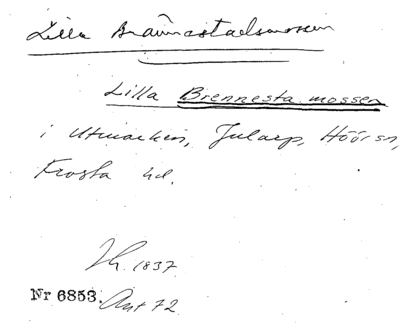 Lilla Brännestadsmossen
Lilla Brennesta mossen
i Utmarken, Jularp, Höörs sn,
Frosta hd.
Lh. 1837
Nr 6853. Ant 72